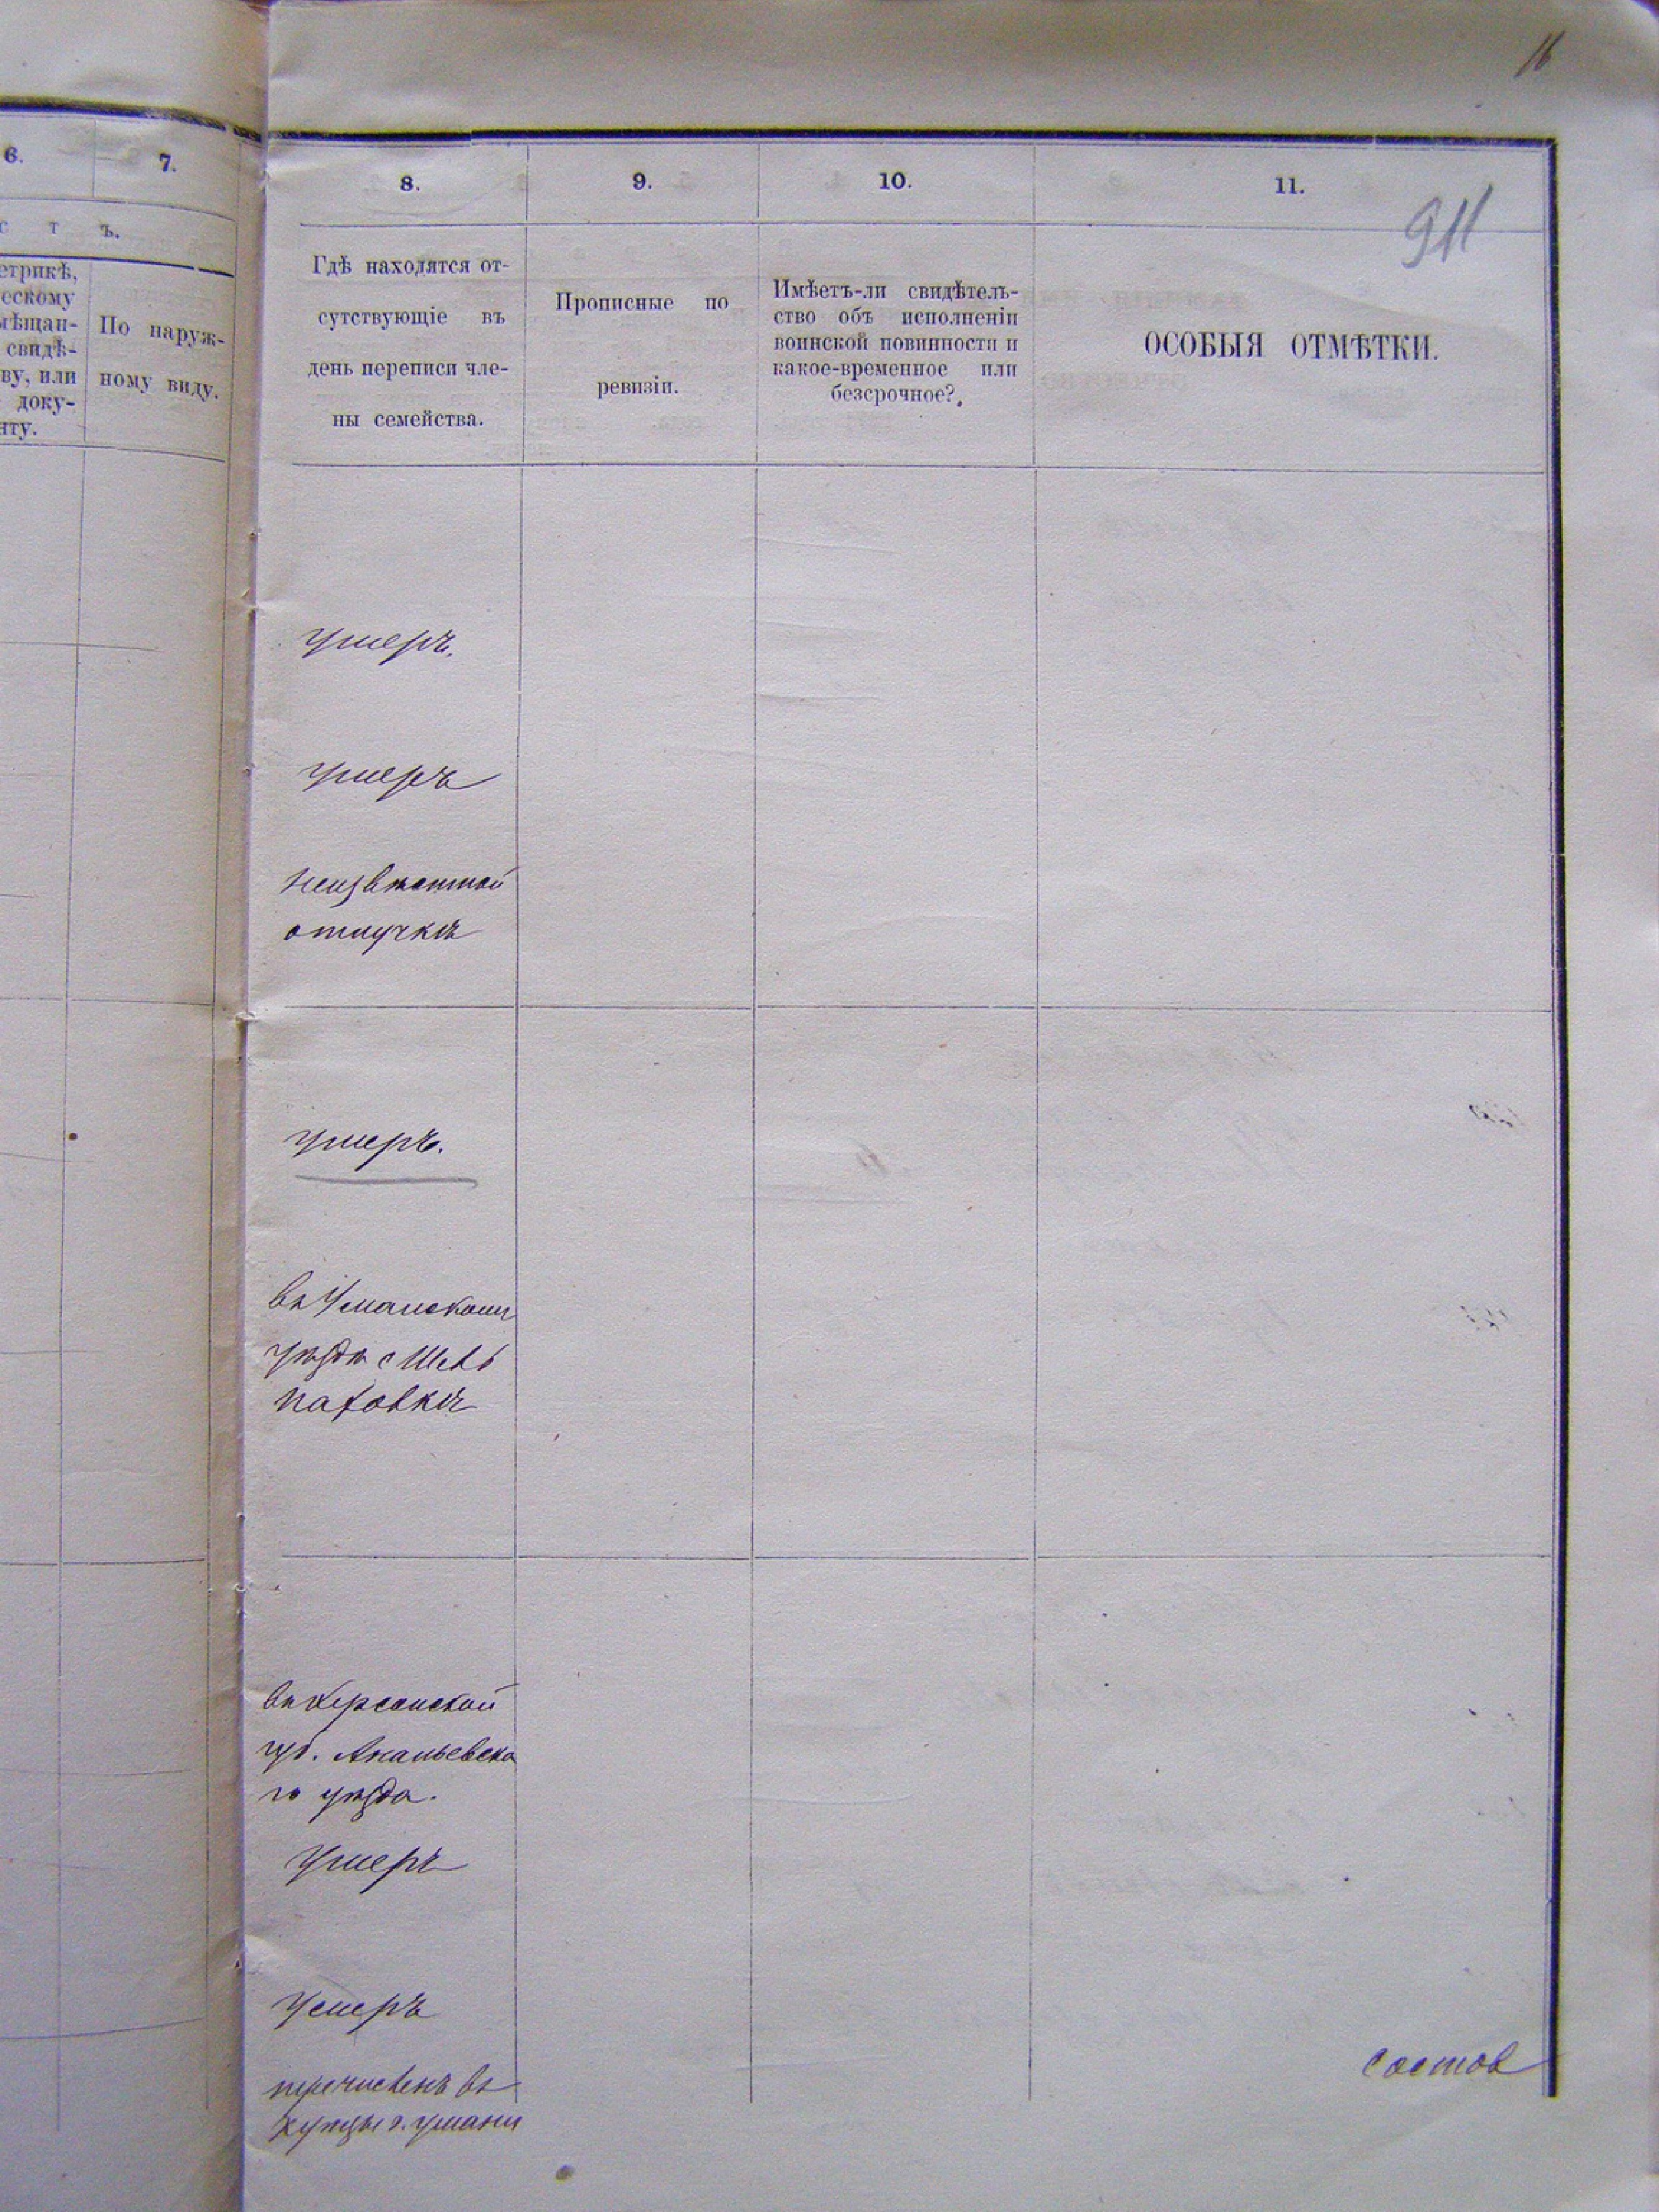 16
911
6.
7.
с т ъ.
етрикѣ,
ескому
мѣщан-
свидѣ-
ву, или
доку-
нту.
По наруж-
ному виду.
8.
9.
10.
11.
Гдѣ находятся от-
сутствующіе въ
день переписи чле-
ны семейства.
Прописные по
ревизіи.
Имѣетъ-ли свидѣтель-
ство объ исполненіи
воинской повинности и
какое-временное или
безсрочное?
ОСОБЫЯ ОТМѢТКИ.
умеръ.
умеръ
неизвѣстной
отлучкѣ
умеръ.
въ Уманскомъ
уѣздѣ с
въ Херсонской
губ. Ананьевска
го уѣзда.
Умеръ
Умеръ
перечисленъ въ
купцы г. Умани
состов